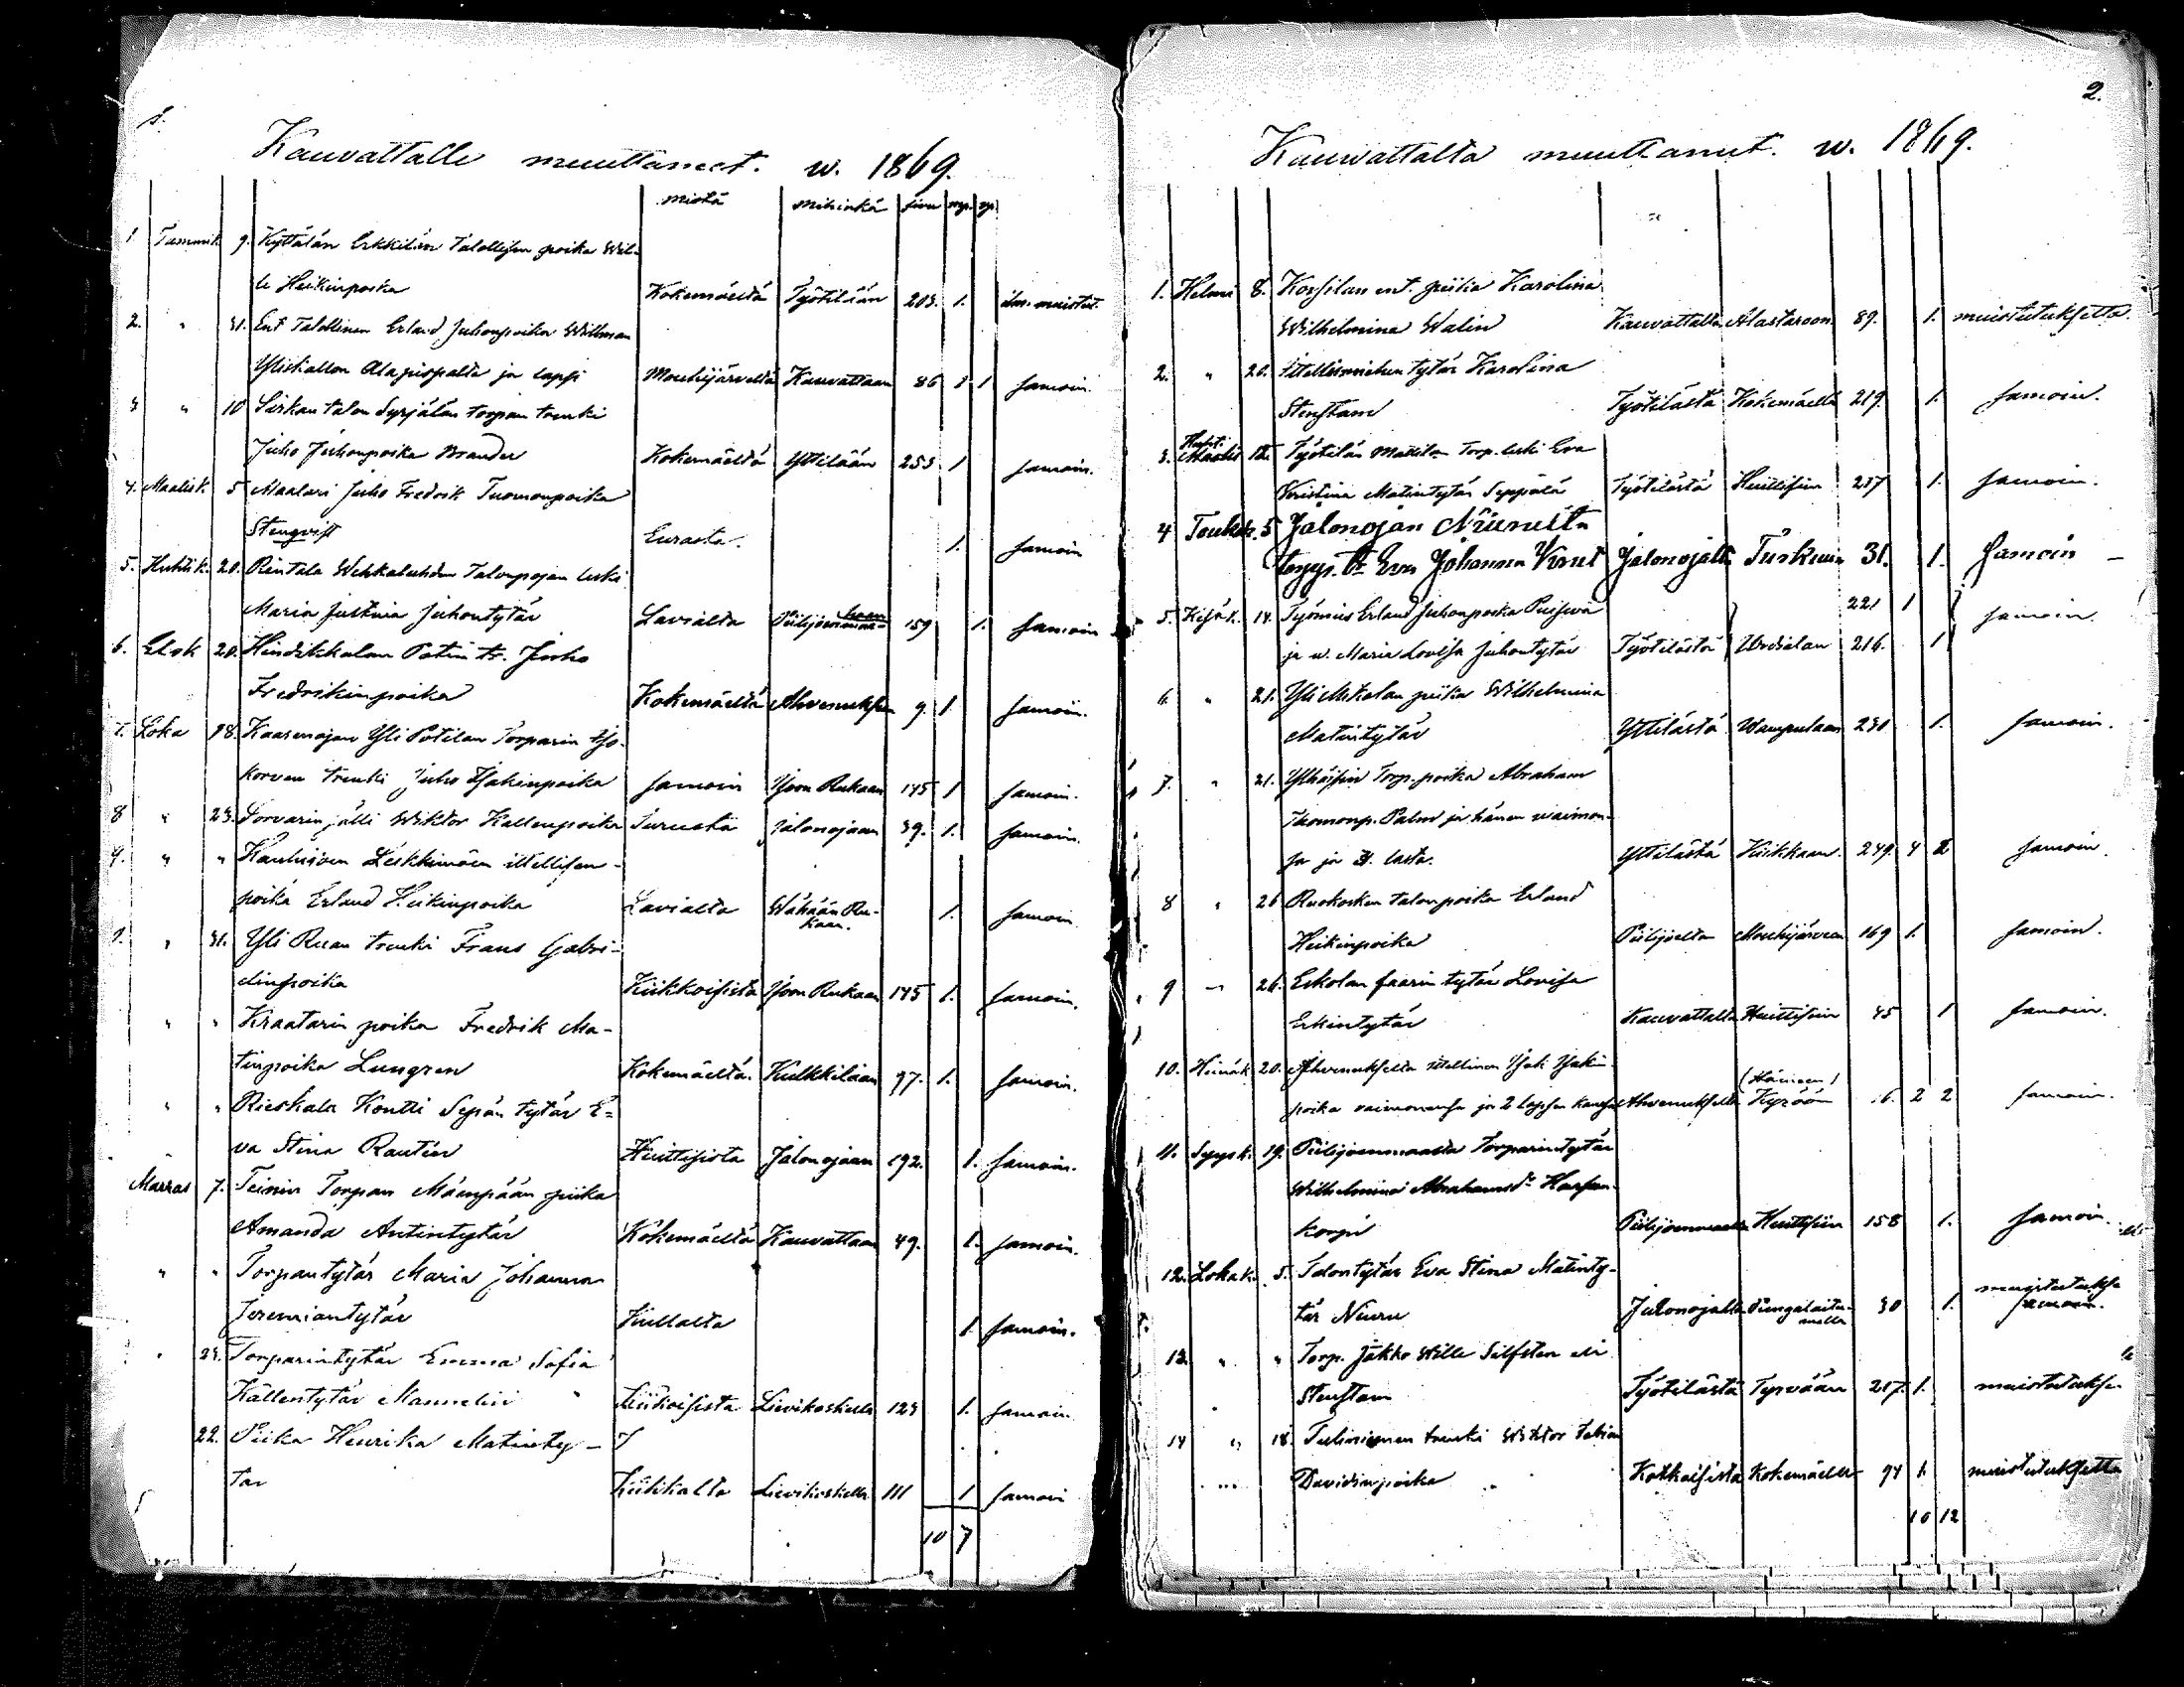 1.
Kauvattalle muuttaneet. w. 1869.
mistä mihinkä sivu mp. vp.
1 Tammik 9. Kyttälän Erkkilän Talollisen poika Wil-
le Heikinpoika Kokemäeltä Työtilään 203. 1. ilm. muistut.
2. " 31. Ent Talollinen Erland Juhonpoika Willman
Yliskallon Alapirspalta ja lapsi Mouhijärveltä Kauvattaan 86 1 1 samoin.
3 " 10 Sirkan talon Syrjälän torpan trenki
Juho Juhonpoika Brander Kokemäeltä Yttilään 253 1 samoin.
4. Maalisk. 5 Maalari Juho Fredrik Tuomonpoika
Stenqvist Eurasta. 1. samoin
5. Huhtik. 20. Rintala Wehkalahden Talonpojan leski
Maria Justina Juhontytär Lavialta 159 1. samoin
6. Elok 20. Hindikkalan Potin tr. Juho
Fredrikinpoika Kokemäeltä Ahvenuksen 9. 1 samoin.
7. Loka 18. Kaarenojan Yli Potilan Torparin Iso-
korven trenki Juho Isakinpoika samoin Ison Rukaan 145 1 samoin.
8 " 23. Sorvarin jälli Wiktor Kallenpoika Turusta Jalonojaan 39. 1. samoin.
9. " " Kauhisoen Leskkimäen itellisen-
poika Erland Heikinpoika Lavialta Wähään Ru-
kaan. 1. samoin
" 31. Yli Ruan trenki Frans Gabri-
elinpoika Kiikkoisista Ison Rukaan 145 1. samoin.
" " Kraatarin poika Fredrik Ma-
tinpoika Lungren Kokemäeltä Kulkkilaan 97. 1. samoin.
" " Rieskala Kontti Sepän tytär E-
va Stina Rautin Huittisista Jalonojaan 192. 1. samoin.
Marras 7. Teinin Torpan Mäenpään piika
Amanda Antintytär Kokemäeltä Kauvattaan 49. 1. samoin.
" " Torpantytär Maria Johanna
Jeremiantytär Kullalta 1 samoin.
" 21. Torparintytär Emma Sofia
Källentytär Mannelin Kiikoisista Lievikoskelle 123 1. samoin
22. Piika Henrika Matinty-
tär Kiikkalta Lievikoskelle 111 1 samoin
10 7
2.
Kauwattalta muuttanut. w. 1869.
1. Helmi 8. Korsilan ent. piika Karolina
Wilhelmina Walin Kauvattalta Alastaroon. 89. 1. muistutuksetta.
2. " 20. Itellismiehen tytär Karolina
Stenstam Työtilästä Kokemäelle 219. 1. samoin.
Huhti
3. 12. Työtilän Mattilan Torp. leski Eva
Kristina Matintytär Seppälä Työtilästä Huittisiin 217 1. samoin.
4 Toukok. 5 Jalonojan Niiruilta
torpp. tr Eva Johanna Knut Jalonojalta Turkuun 31. 1. samoin
5. Kesäk. 14. Työmies Erland Juhonpoika 221 1 samoin.
ja w. Maria Lovisa Juhontytär Työtilästä Urdialan 216. 1
6 " 21. Yli Mikolan piika Wilhelmina
Matintytär Yttilästä Wampulaan 230 1. samoin.
7. " 21. Yttöisiin Torp. poika Abraham
Tuomonp. Palm ja hänen waimon-
sa ja lasta. Yttilästä Kiikkaan. 249. 4 2 samoin.
8 " 26 Ruokosken talonpoika Erland
Heikinpoika Piilijoelta Mouhijärveen 169 1. samoin.
9 " 26. Eskolan faarin tytär Lovisa
Erkintytär Kauvattalta Huittisiin 45 1 samoin.
10. Heinäk 20. Ahvenukselta itellinen Isak Isakin-
(Hämeen)
poika vaimonensa ja 2 lapsen kanssa Ahvenukselta Kyröön 6. 2 2 samoin.
11. Syysk. 19. Piilijoenmaalta Torparintytär
Wilhelmina Abrahamsdr Harsun-
korpi Piilijoenmaalta Huittisiin 158 1. samoin.
12. Lokak. 5. Talontytär Eva Stina Matinty-
tär Niuru Jalonojalta Pungalaitu-
melle 30 1. muistutukse
13. " " Torp. Jakko Wille Silfsten eli
Stenstam Työtilästä Tyrvään 217. 1. muistutukse
14 " 18. Tulinimen trenki Wiktor Fabian
Davidinpoika Kokemäelle 94 1. muistutuksetta
10 12